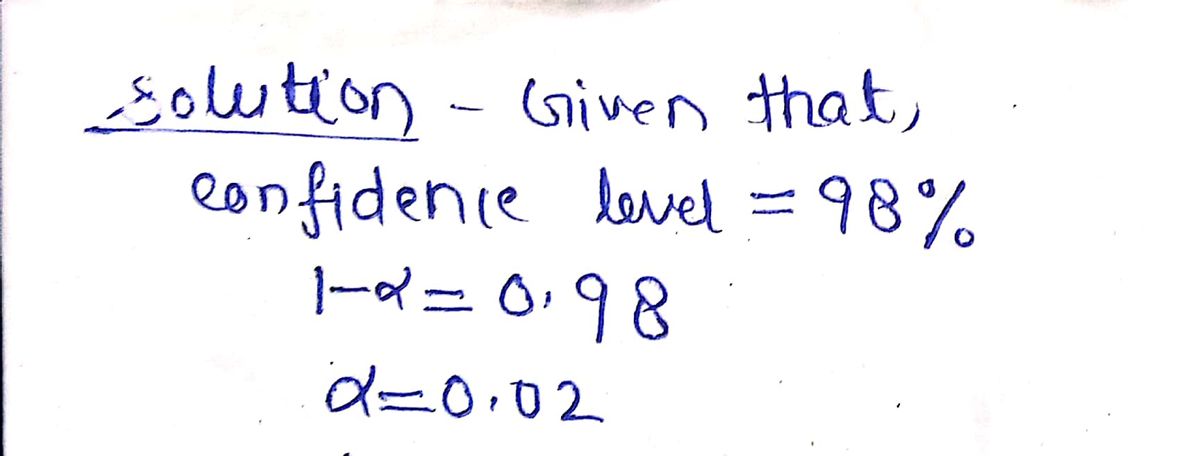 Solution - Given that,
confidence level = 98%
1-α = 0.98
α = 0.02